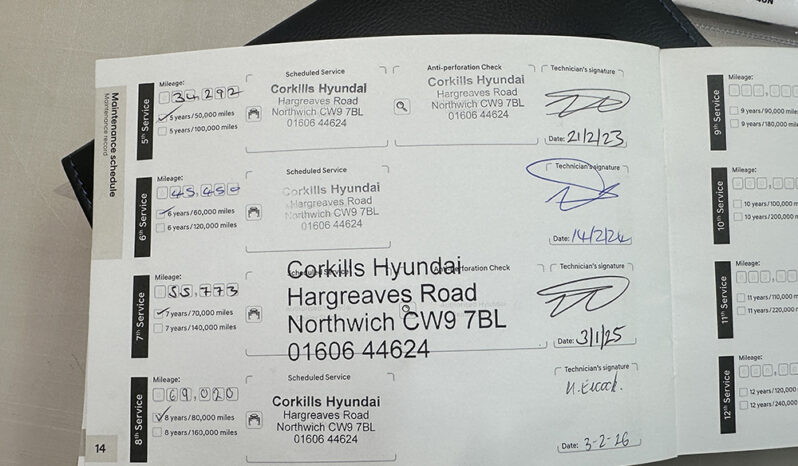 Maintenance schedule
Maintenance record
5th Service
Mileage:
34,292
5 years/50,000 miles
5 years/100,000 miles
Scheduled Service
Corkills Hyundai
Hargreaves Road
Northwich CW9 7BL
01606 44624
Anti-perforation Check
Corkills Hyundai
Hargreaves Road
Northwich CW9 7BL
01606 44624
Technician's signature
Date: 21/2/23
6th Service
Mileage:
45,450
6 years/60,000 miles
6 years/120,000 miles
Scheduled Service
Corkills Hyundai
Hargreaves Road
Northwich CW9 7BL
01606 44624
Technician's signature
Date: 14/2/24
7th Service
Mileage:
55,773
7 years/70,000 miles
7 years/140,000 miles
Scheduled Service
Anti-perforation Check
Corkills Hyundai
Hargreaves Road
Northwich CW9 7BL
01606 44624
Technician's signature
Date: 3/1/25
8th Service
Mileage:
69,020
8 years/80,000 miles
8 years/160,000 miles
Scheduled Service
Corkills Hyundai
Hargreaves Road
Northwich CW9 7BL
01606 44624
Technician's signature
Date: 3-2-26
14
9th Service
Mileage:
9 years/90,000 mile
9 years/180,000 mile
10th Service
Mileage:
10 years/100,000 m
10 years/200,000
11th Service
Mileage:
11 years/110,000 m
11 years/220,000
12th Service
Mileage:
12 years/120,000
12 years/240,000